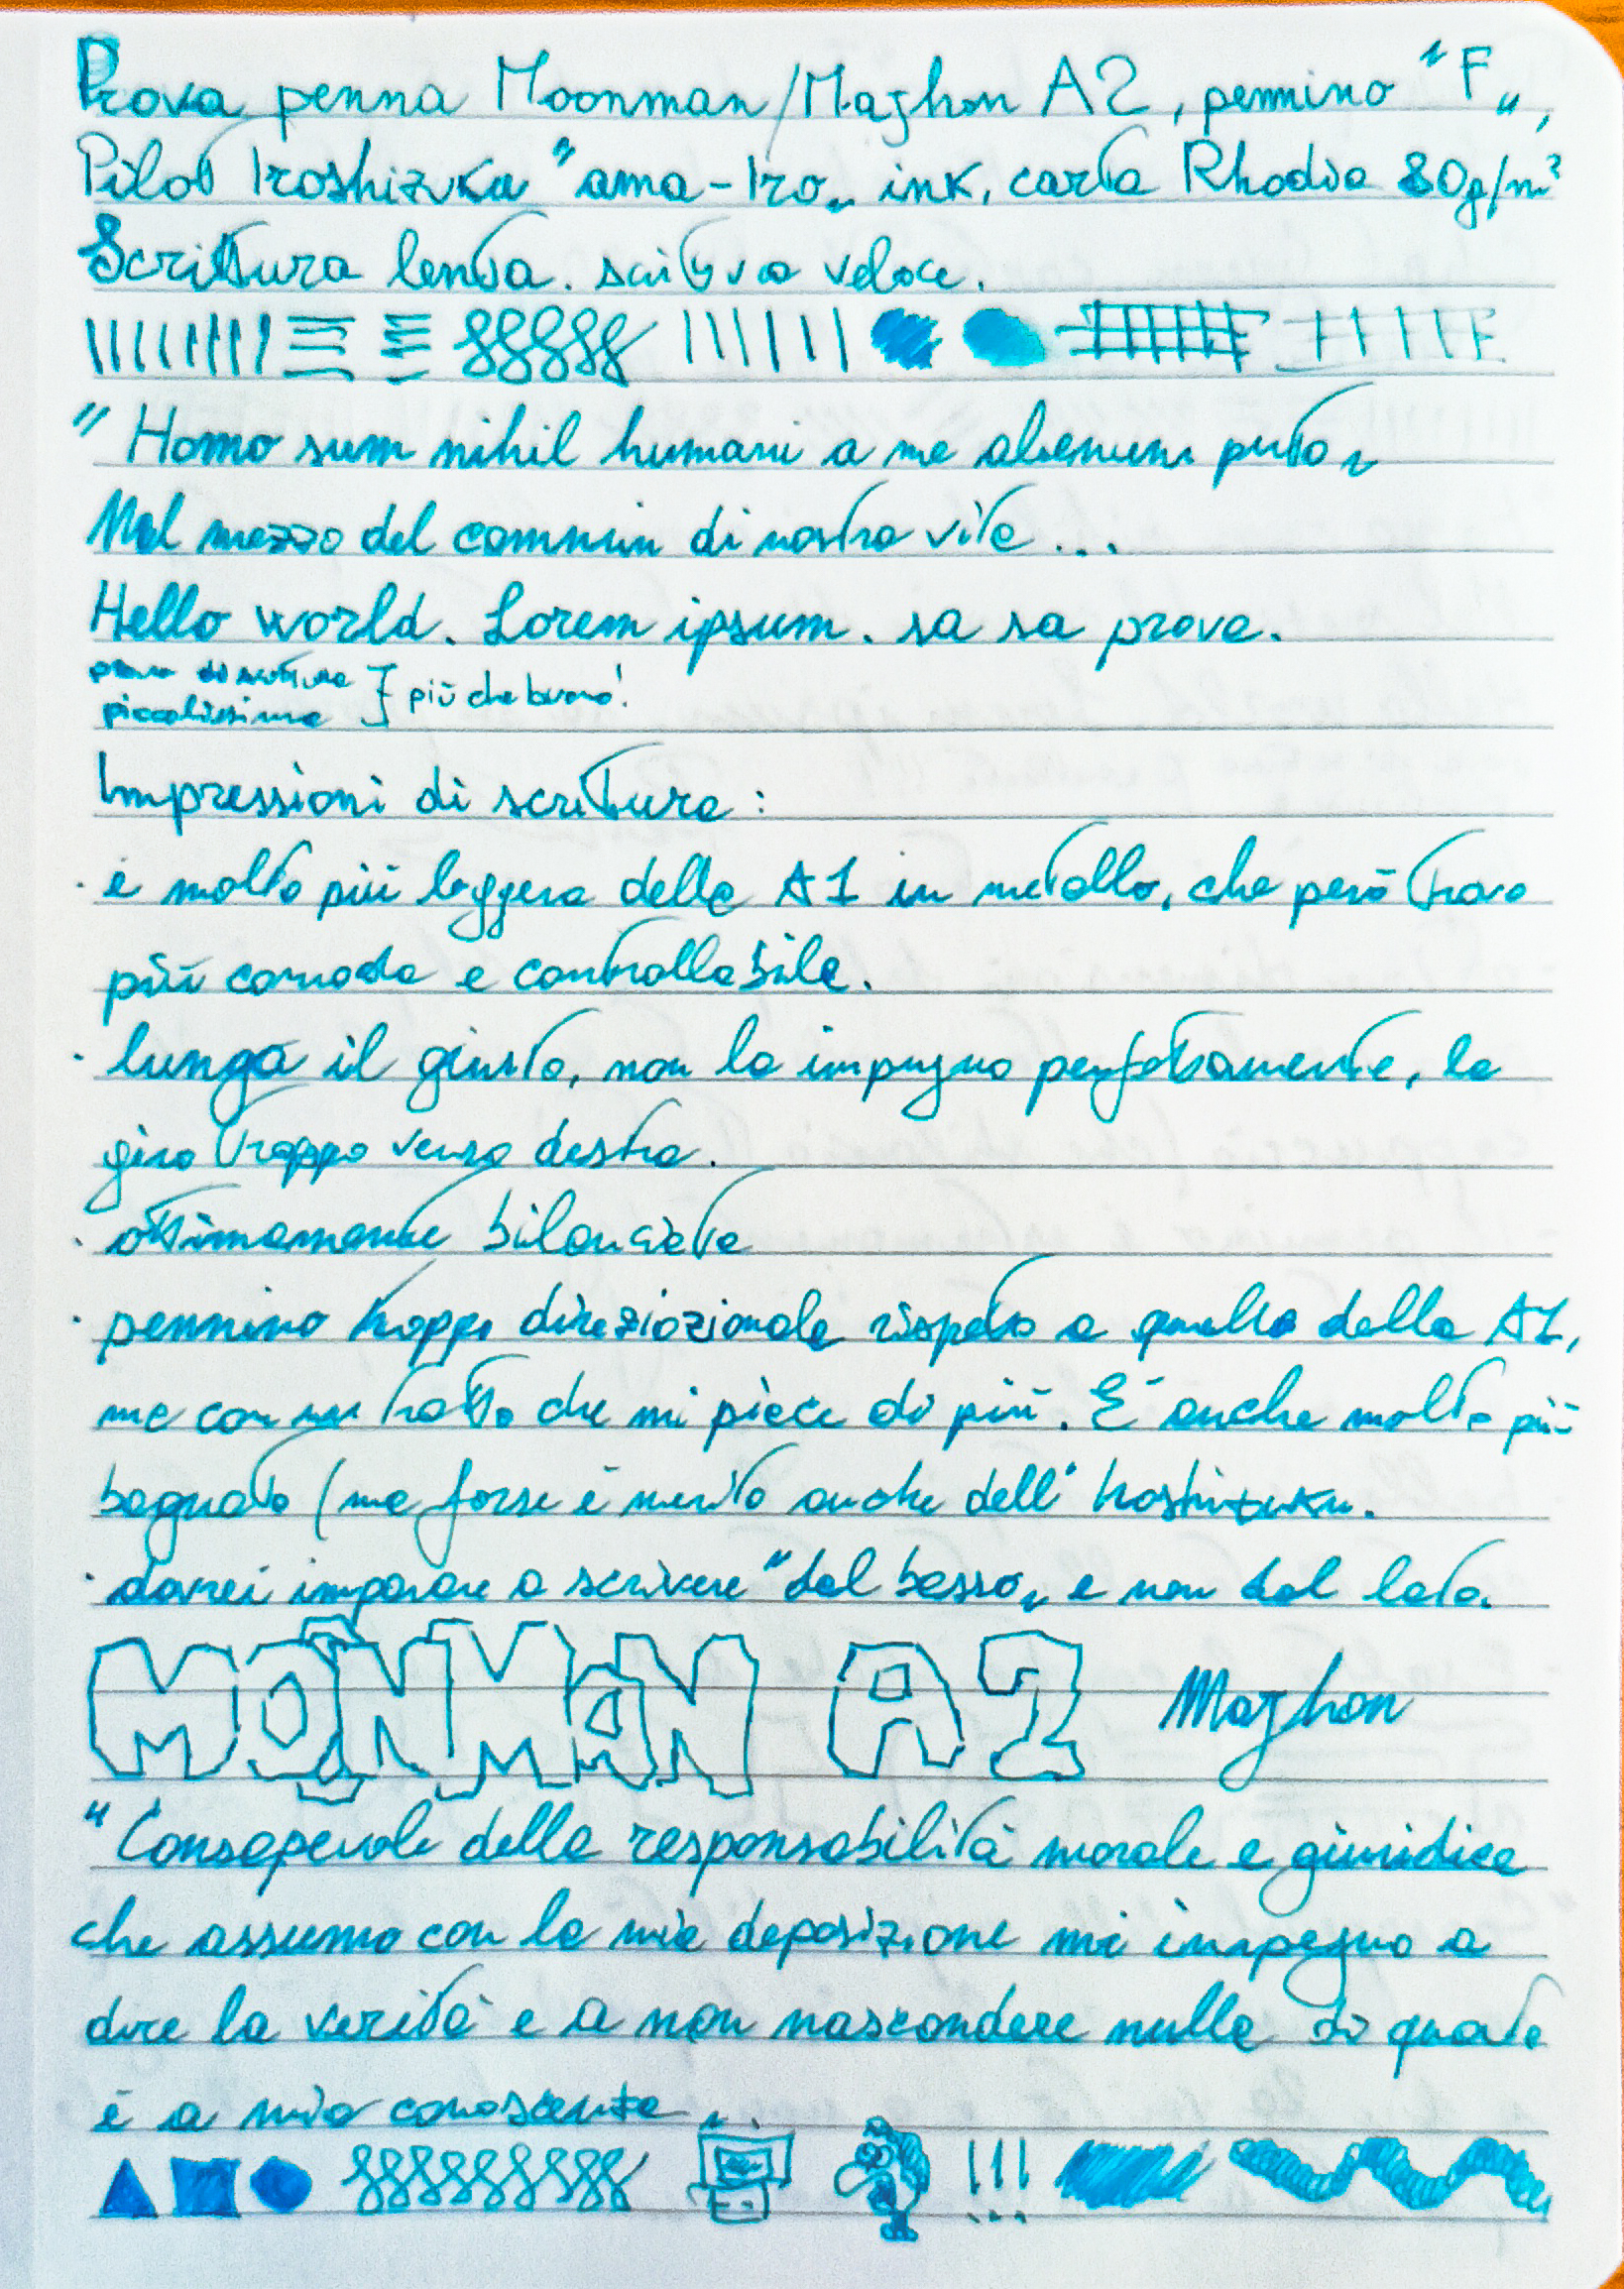 Prova penna Moonman/Majhon A2, pennino "F„,
Pilot Iroshizuku "ama-Iro„ ink, carta Rhodia 80g/m²
Scrittura lenta. scrittura veloce.
"Homo sum nihil humani a me alienum puto„
Nel mezzo del cammin di nostra vita...
Hello world. Lorem ipsum. sa sa prova.
prova di scrittura
piccolissima } più che buono!
Impressioni di scrittura:
· è molto più leggera della A1 in metallo, che però trovo
più comoda e controllabile.
· lunga il giusto, non la impugno perfettamente, la
giro troppo verso destra.
· ottimamente bilanciata
· pennino troppo direziozionale rispetto a quello della A1,
ma con un tratto che mi piace di più. È anche molto più
bagnato (ma forse è merito anche dell' Iroshizuku.
· dovrei imparare a scrivere "dal basso„ e non dal lato.
MOONMAN A2 Majhon
"Consapevole della responsabilità morale e giuridica
che assumo con la mia deposizione mi impegno a
dire la verità e a non nascondere nulla di quanto
è a mia conoscenza„.
!!!